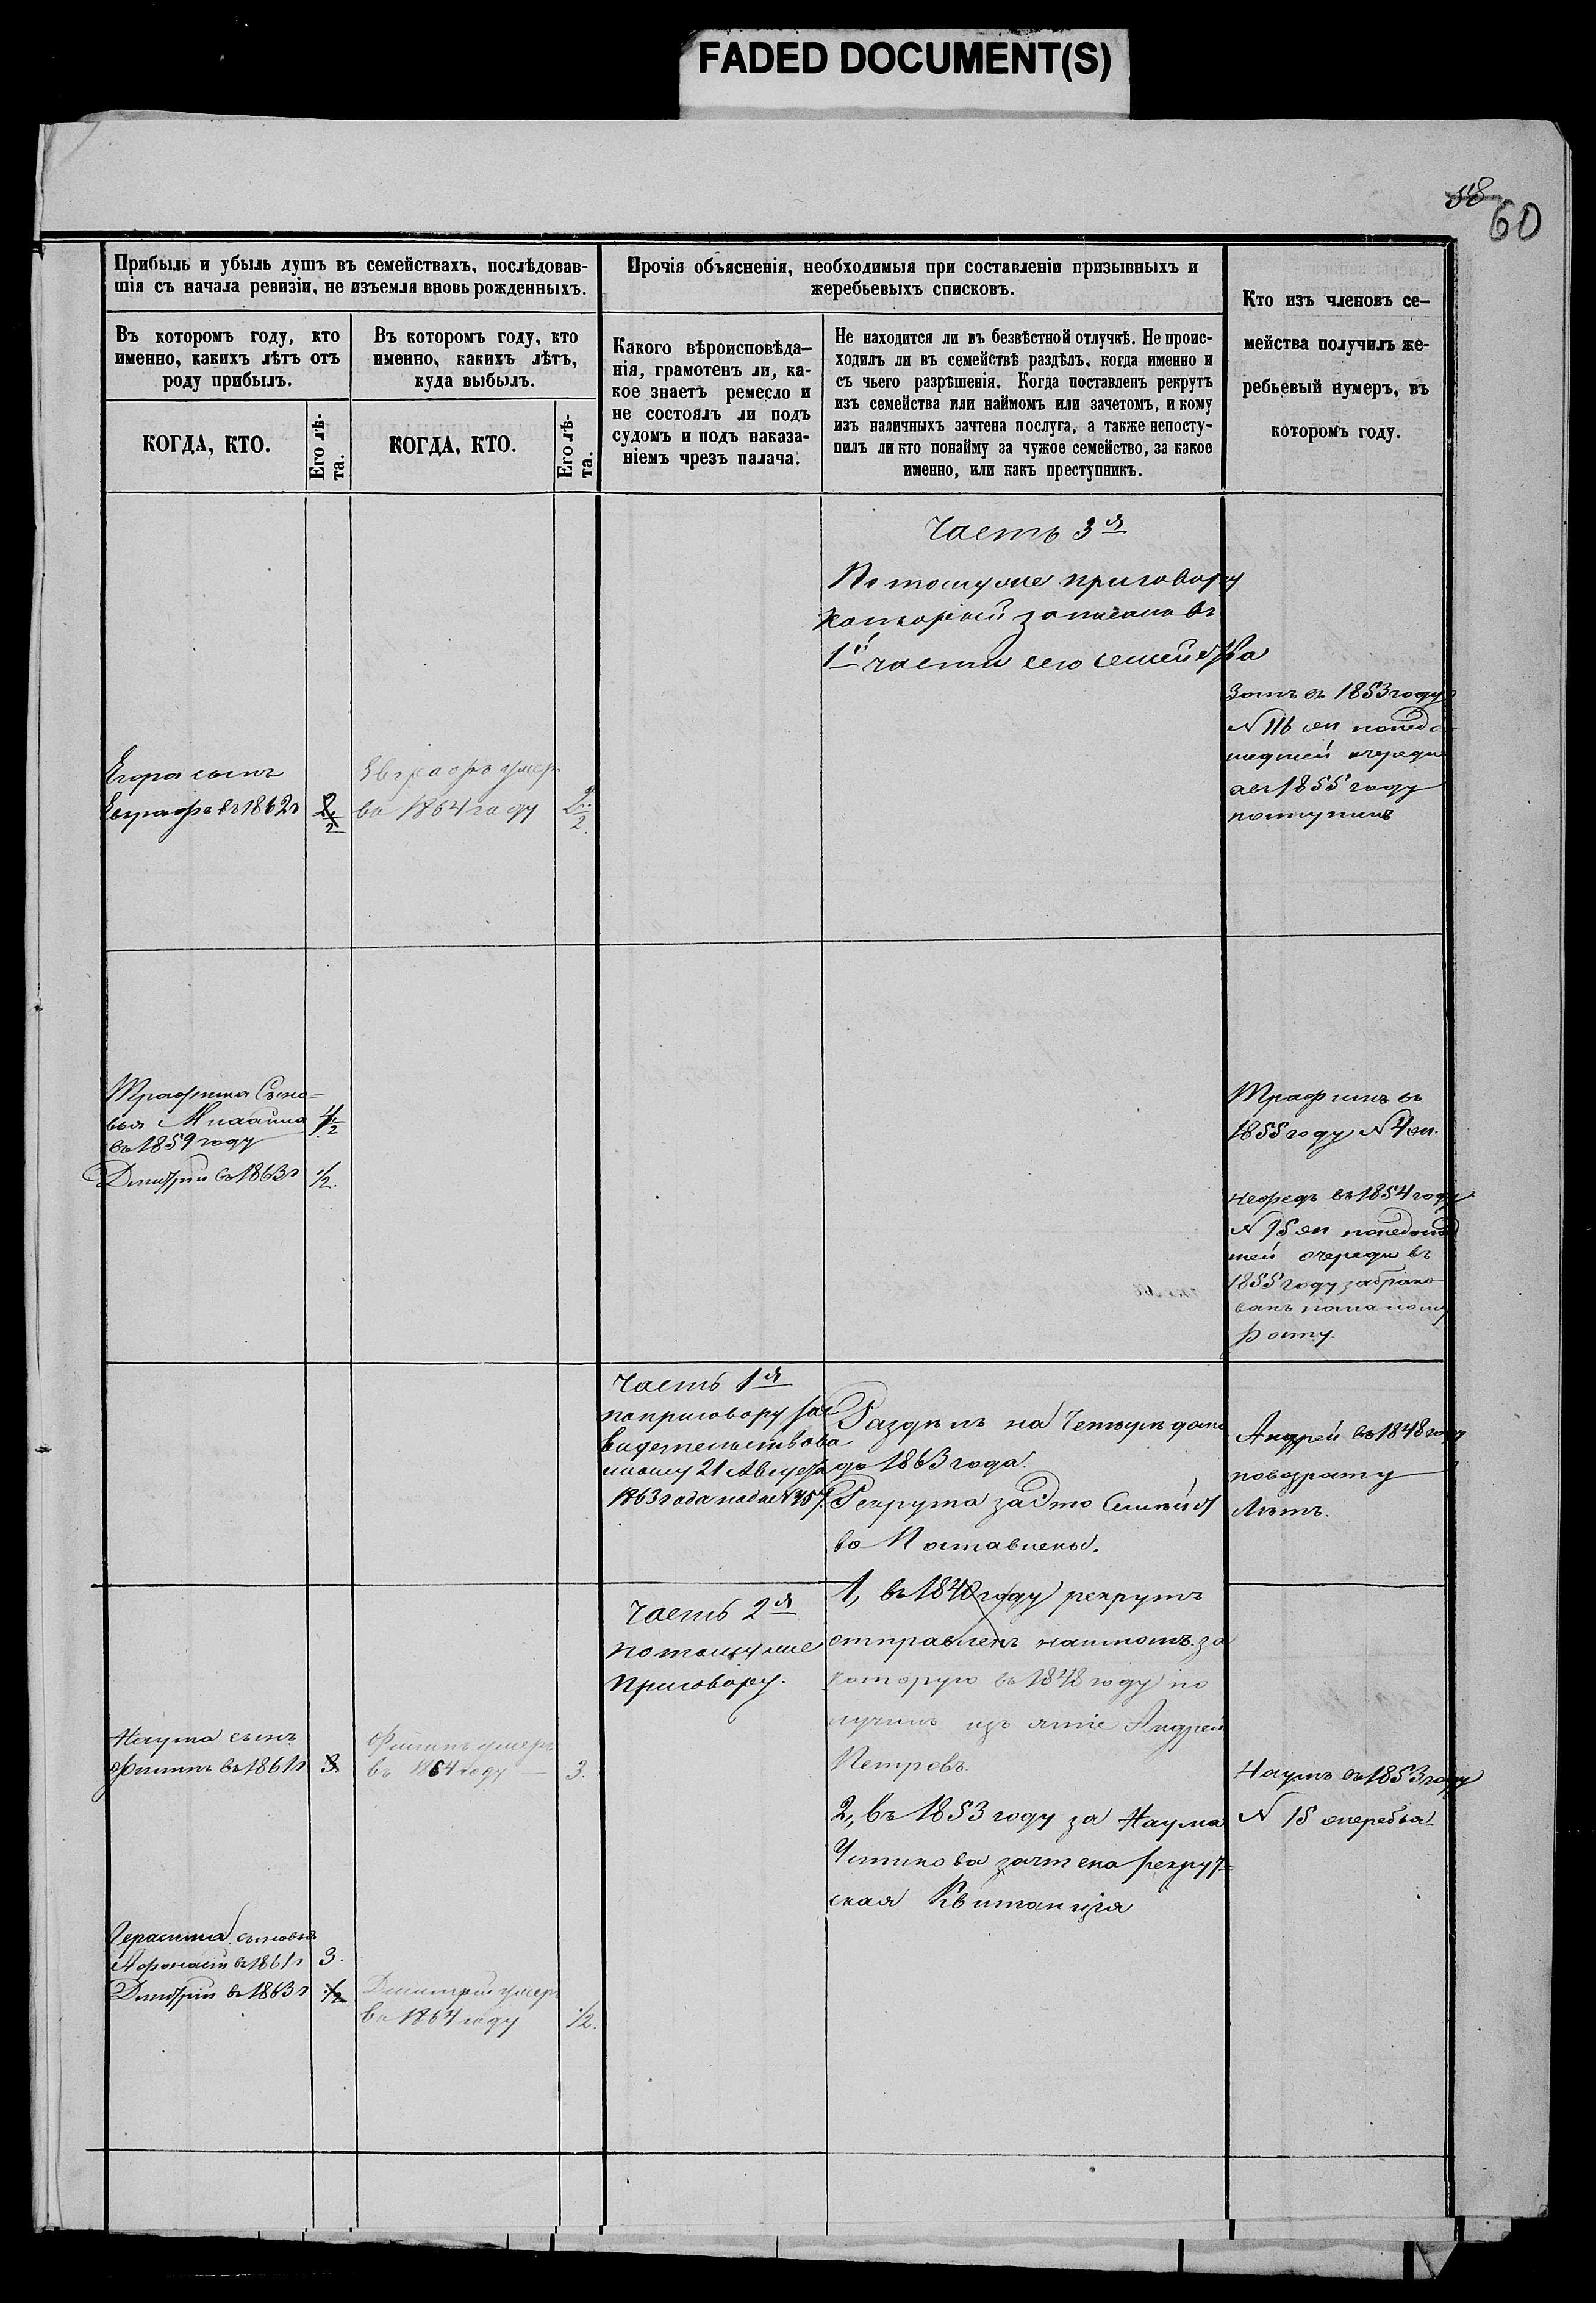 FADED DOCUMENT(S)
58
60
Прибыль и убыль душъ въ семействахъ, послѣдовав-
шія съ начала ревизіи, не изъемля вновь рожденныхъ.
Прочія объясненія, необходимыя при составленіи призывныхъ и
жеребьевыхъ списковъ.
Кто изъ членовъ се-
мейства получилъ же-
ребьевый нумеръ, въ
которомъ году.
Въ которомъ году, кто
именно, какихъ лѣтъ отъ
роду прибылъ.
Въ которомъ году, кто
именно, какихъ лѣтъ,
куда выбылъ.
Какого вѣроисповѣда-
нія, грамотенъ ли, ка-
кое знаетъ ремесло и
не состоялъ ли подъ
судомъ и подъ наказа-
ніемъ чрезъ палача.
Не находится ли въ безвѣстной отлучкѣ. Не проис-
ходилъ ли въ семействѣ раздѣлъ, когда именно и
съ чьего разрѣшенія. Когда поставленъ рекрутъ
изъ семейства или наймомъ или зачетомъ, и кому
изъ наличныхъ зачтена послуга, а также непосту-
пилъ ли кто понайму за чужое семейство, за какое
именно, или какъ преступникъ.
КОГДА, КТО.
Его лѣ-
та.
КОГДА, КТО.
Его лѣ-
та.
Часть 3я
По томуже приговору
который записано въ
1й части сего семейства
Зотъ въ 1853 году
N 116 
очереди
1855 году
поступилъ
Егора сынъ
Евграфъ въ 1862г
2 1/2
Евграфъ умеръ
во 1864 году
2 1/2
Трафима Сыно-
вья
въ 1859 году
4 1/2
Дмитрій въ 1863г
1/2.
Трафимъ въ
1855 году N 4
Нефедъ въ 1854 году
N 15
очереди въ
1855 году забрако-
ванъ помалому
росту.
Часть 1я
поприговору зас
видетельствова
нному 21 Августа
1863 года
Раздѣлъ на Четыре дома
до 1863 года.
Рекрута за это Семѣйст
во Поставлены.
Андрей въ 1848 году
повозрату
Лѣтъ.
Часть 2я
потомуже
приговору.
1, въ 1840 году рекрутъ
отправленъ наймомъ. за
которую въ 1848 году по
лучилъ Андрей
Петровъ.
2, въ 1853 году за Наума
зачтена рекрут-
ская Квитанція
Наума сынъ
Филипъ въ 1861г
3
Филипъ умеръ
въ 1864 году
3.
Наумъ въ 1853 году
N 15 жеребья.
Герасима сыновья
Афонасій въ 1861г
3.
Дмитрій въ 1863г
1/2
Дмитрій умеръ
во 1864 году
1/2.